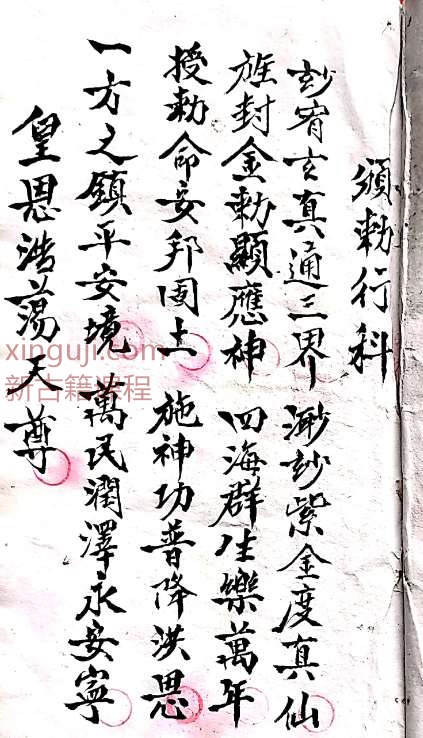 頒勅行科
玅宥玄真通三界 渺玅紫金度真仙
旌封金勅顯應神 四海群生樂萬年
授勅命安邦固土 施神功普降洪恩
一方之鎮平安境 萬民潤澤永安寧
皇恩浩蕩天尊
xinguji.com
新古籍课程